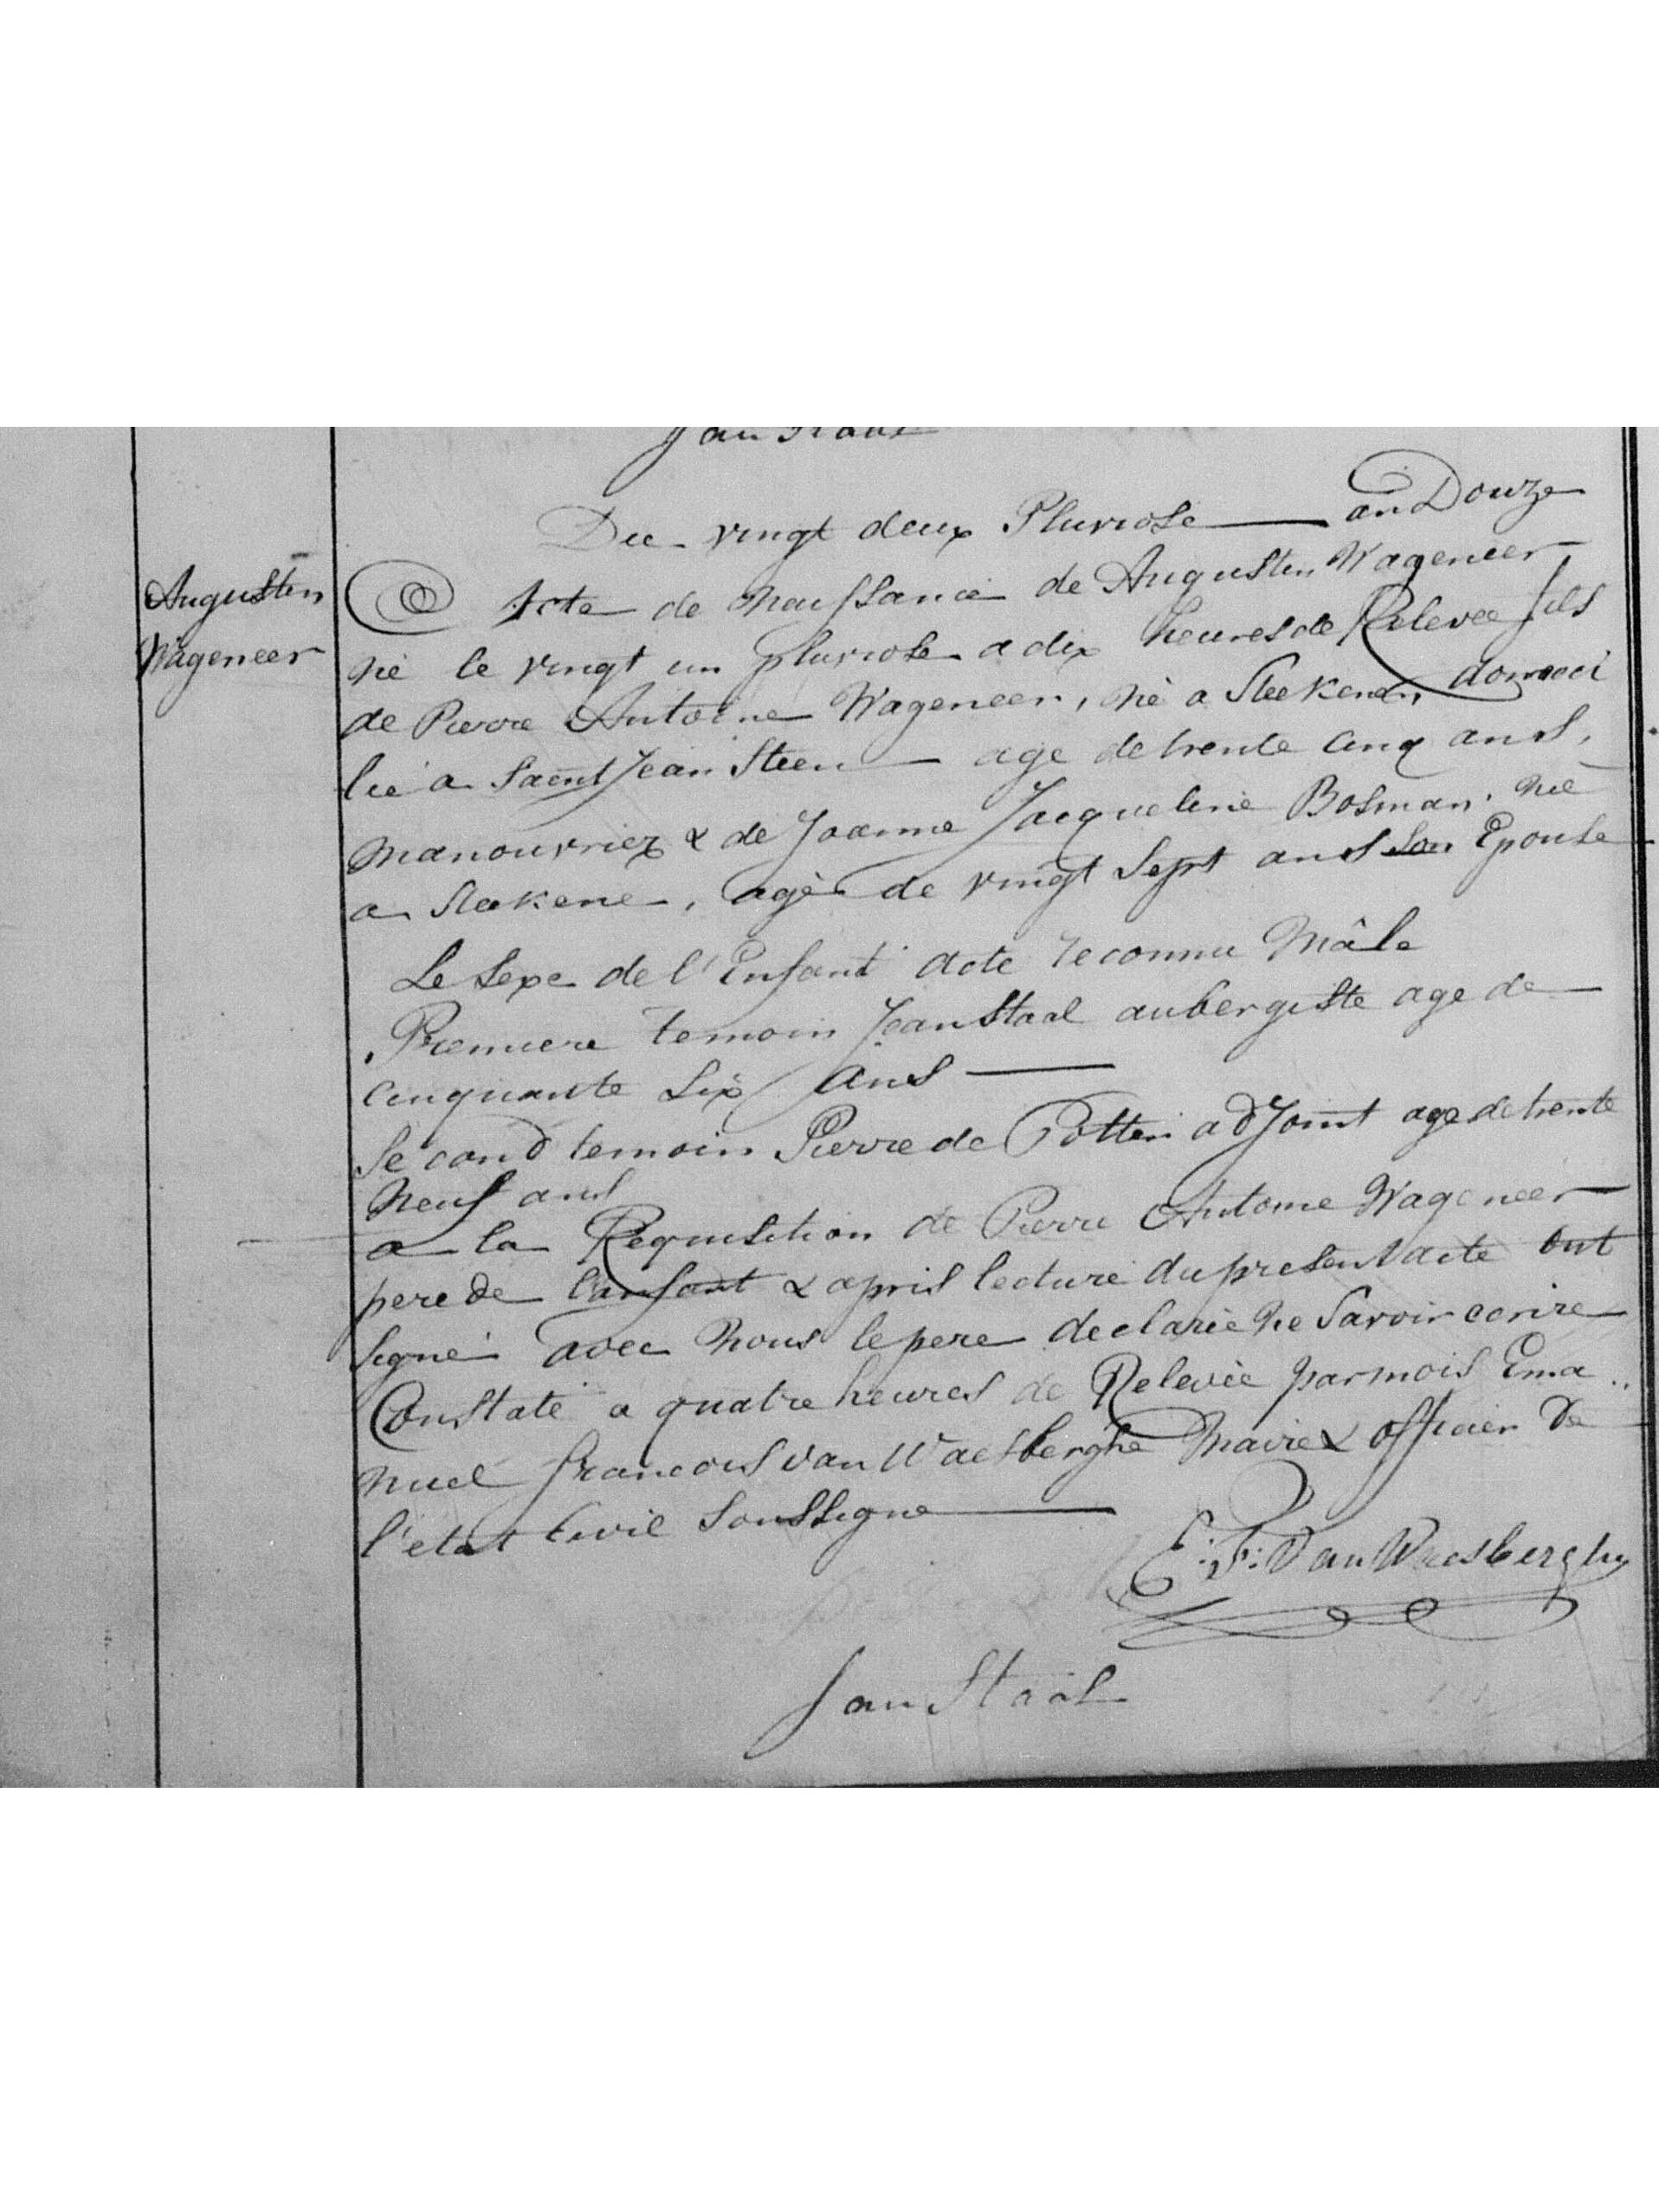 Du vingt deux Pluviose an Douze
Augustin
Wageneer
Acte de naissance de Augustin Wageneer
né le vingt un pluviose a dix heures de Relevee fils
de Pierre Antoine Wageneer, né a Steekenen domeci
lié a Saint Jean Steen age de trente cinq ans,
manouvriez & de Joanne Jacqueline Bosman. né
a Steekene, agé de vingt sept ans son Epouse
Le sexe de l'Enfant a été reconnu Mâle
Premiere temoin Jean Staal aubergiste age de
cinquante Six Ans
Second temoin Pierre de Potter adjoint age de trente
neuf ans
a la Requisition de Pierre Antoine Wageneer
pere de l'anfant & apris lecture du present acte ont
signé avec nous le pere declarié ne Savoir ecrire
Constaté a quatre heures de Relevée par mois Ema
nuel francois van Waesberghe Maire & officier De
l'etat Civil Soussigne
E: F: Van Waesberghe
Jan Staal